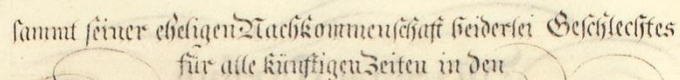 sammt seiner eheligen Nachkommenschaft beiderlei Geschlechtes
für alle künftigen Zeiten in den